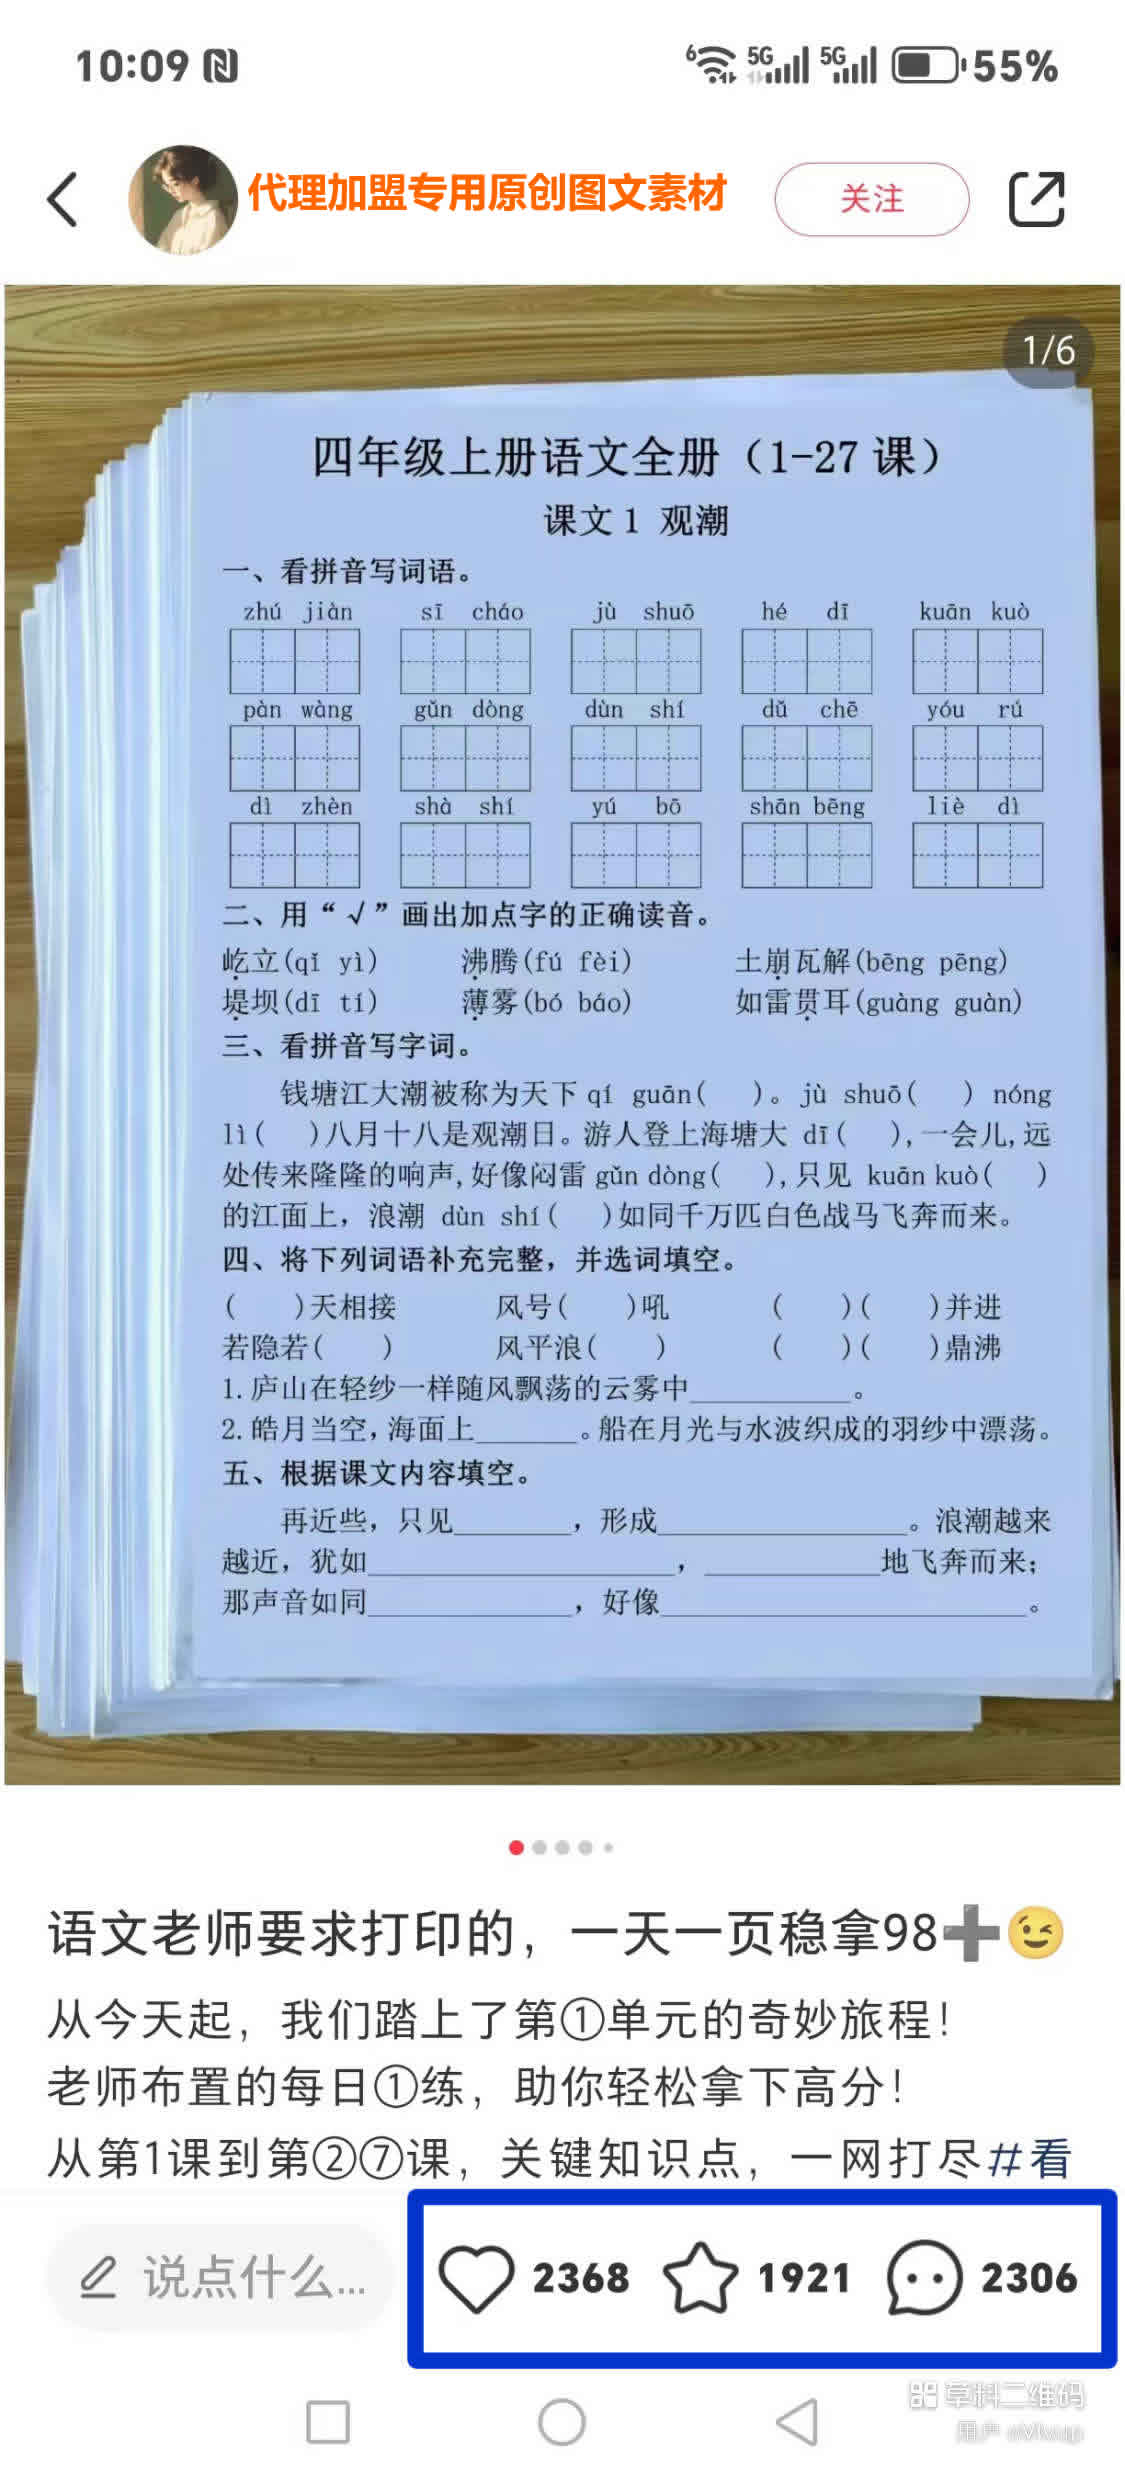 10:09
6 5G 5G 55%
代理加盟专用原创图文素材
关注
1/6
四年级上册语文全册（1-27 课）
课文1 观潮
一、看拼音写词语。
zhú jiàn sī cháo jù shuō hé dī kuān kuò
pàn wàng gǔn dòng dùn shí dǔ chē yóu rú
dì zhèn shà shí yú bō shān bēng liè dì
二、用“√”画出加点字的正确读音。
屹立(qǐ yì) 沸腾(fú fèi) 土崩瓦解(bēng pēng)
堤坝(dī tí) 薄雾(bó báo) 如雷贯耳(guàng guàn)
三、看拼音写字词。
钱塘江大潮被称为天下 qí guān( )。jù shuō( ) nóng
lì( )八月十八是观潮日。游人登上海塘大 dī( ),一会儿,远
处传来隆隆的响声,好像闷雷 gǔn dòng( ),只见 kuān kuò( )
的江面上，浪潮 dùn shí( )如同千万匹白色战马飞奔而来。
四、将下列词语补充完整，并选词填空。
( )天相接 风号( )吼 ( )( )并进
若隐若( ) 风平浪( ) ( )( )鼎沸
1.庐山在轻纱一样随风飘荡的云雾中___________。
2.皓月当空,海面上_______。船在月光与水波织成的羽纱中漂荡。
五、根据课文内容填空。
再近些，只见________，形成_________________。浪潮越来
越近，犹如_____________________，____________地飞奔而来；
那声音如同______________，好像_________________________。
语文老师要求打印的，一天一页稳拿98➕😉
从今天起，我们踏上了第①单元的奇妙旅程！
老师布置的每日①练，助你轻松拿下高分！
从第1课到第②⑦课，关键知识点，一网打尽#看
说点什么... 2368 1921 2306
草料二维码
用户